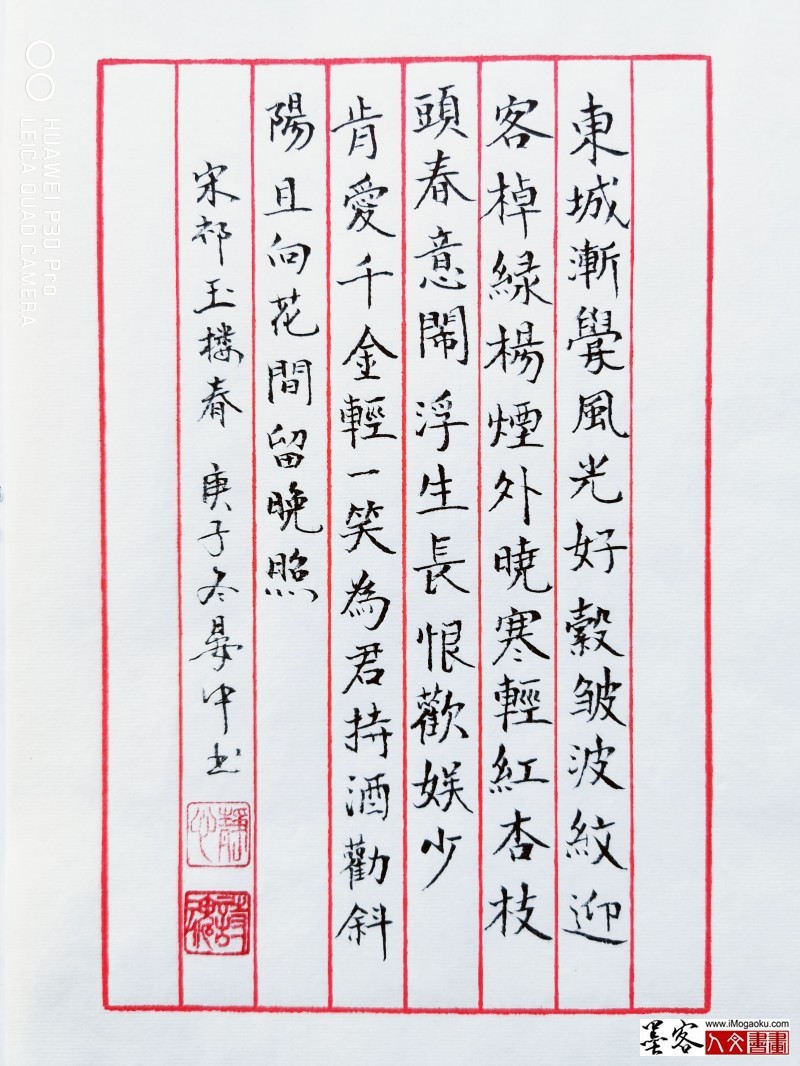 東城漸覺風光好縠皱波紋迎
客棹緑楊煙外曉寒輕紅杏枝
頭春意鬧浮生長恨歡娛少
肯愛千金輕一笑為君持酒勸斜
陽且向花間留晚照
宋祁玉楼春 庚子冬晏中书
靜心
HUAWEI P30 Pro
LEICA QUAD CAMERA
墨客
www.iMogaoku.com
人文書畫